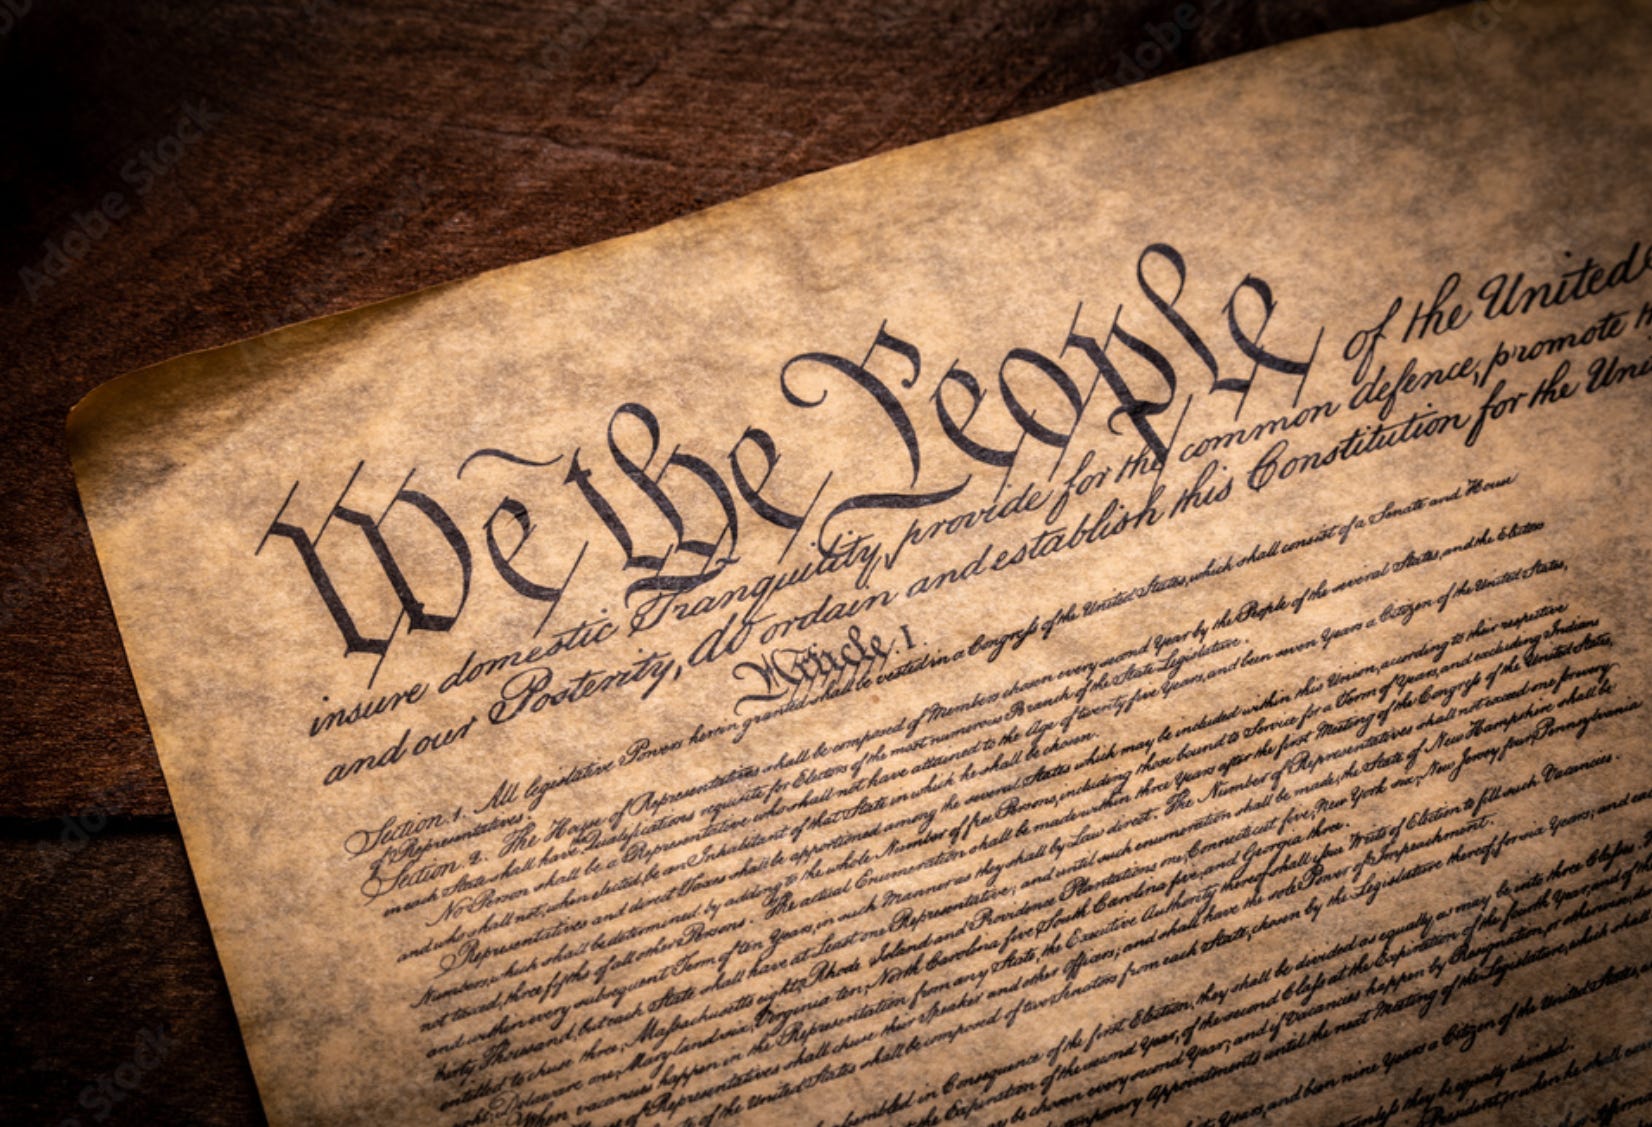 We the People of the United
insure domestic Tranquility, provide for the common defence, promote
and our Posterity, do ordain and establish this Constitution for the
Article. I.
Section. 1. All legislative Powers herein granted shall be vested in a Congress of the United States, which shall consist of a Senate and House
of Representatives.
Section. 2. The House of Representatives shall be composed of Members chosen every second Year by the People of the several States, and the Electors
in each State shall have Qualifications requisite for Electors of the most numerous Branch of the State Legislature.
No Person shall be a Representative who shall not have attained to the Age of twenty five Years, and been seven Years a Citizen of the United States,
and who shall not, when elected, be an Inhabitant of that State in which he shall be chosen.
Representatives and direct Taxes shall be apportioned among the several States which may be included within this Union, according to their respective
Numbers, which shall be determined by adding to the whole Number of free Persons, including those bound to Service for a Term of Years, and excluding Indians
not taxed, three fifths of all other Persons. The actual Enumeration shall be made within three Years after the first Meeting of the Congress of the United States,
and within every subsequent Term of ten Years, in such Manner as they shall by Law direct. The Number of Representatives shall not exceed one for every
thirty Thousand, but each State shall have at Least one Representative; and until such enumeration shall be made, the State of New Hampshire shall be
entitled to chuse three, Massachusetts eight, Rhode Island and Providence Plantations one, Connecticut five, New York six, New Jersey four, Pennsylvania
eight, Delaware one, Maryland six, Virginia ten, North Carolina five, South Carolina five, and Georgia three.
When vacancies happen in the Representation from any State, the Executive Authority thereof shall issue Writs of Election to fill such Vacancies.
of Representatives shall chuse their Speaker and other Officers; and shall have the sole Power of Impeachment.
of the United States shall be composed of two Senators from each State, chosen by the Legislature thereof, for six Years; and
assembled in Consequence of the first Election, they shall be divided as equally as may be into three Classes.
the Expiration of the second Year, of the second Class at the Expiration of the fourth Year, and of the
be chosen every second Year; and if Vacancies happen by Resignation, or otherwise,
temporary Appointments until the next Meeting of the Legislature, which shall
Years, and been nine Years a Citizen of the United States
unless they be equally divided.
President, or when he shall
Adobe Stock